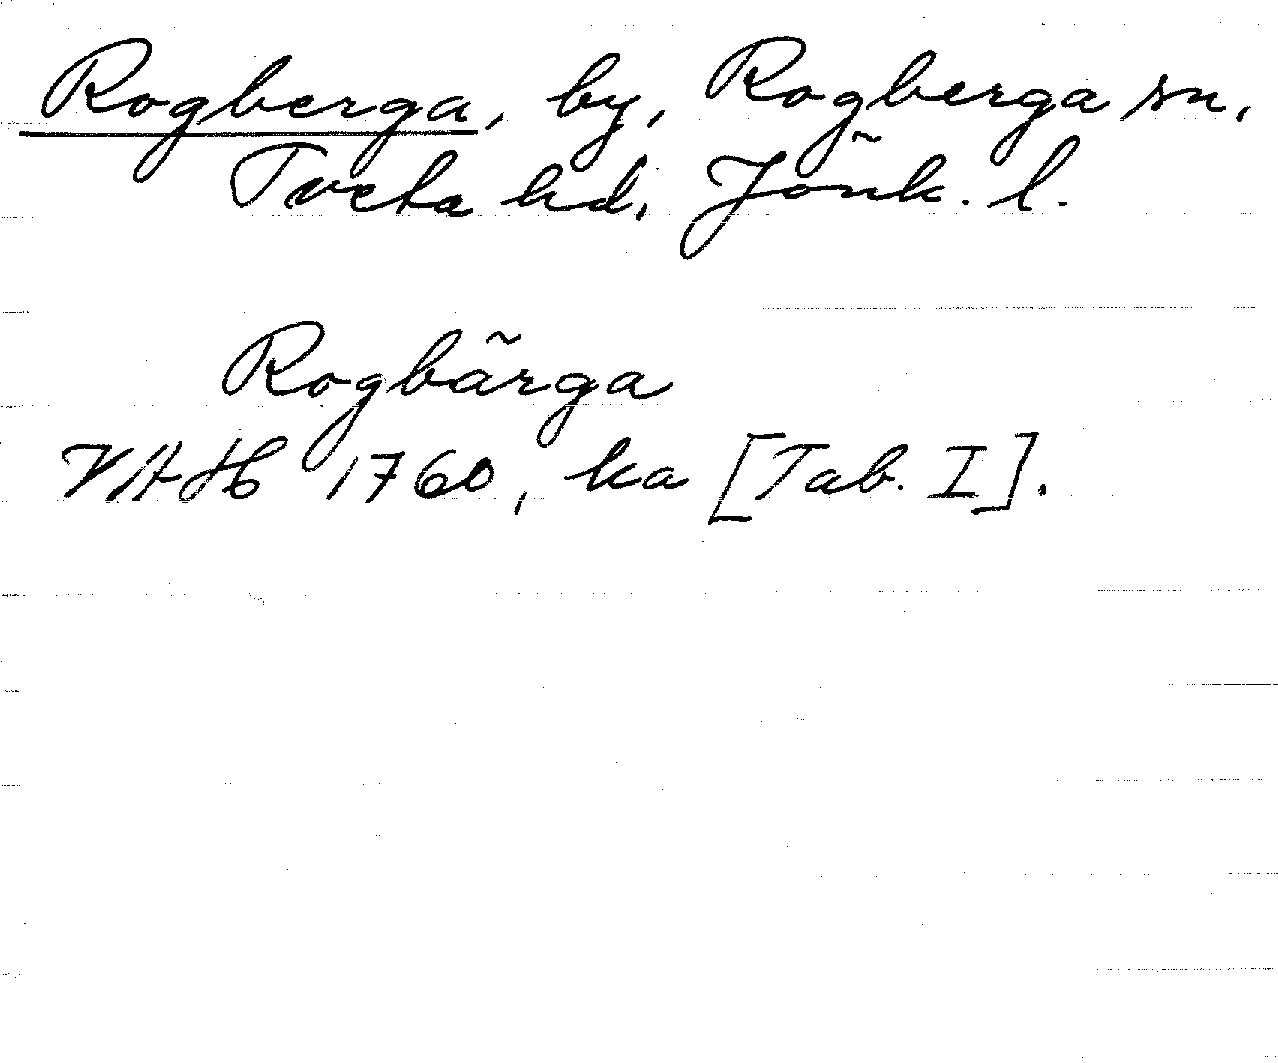 Rogberga, by, Rogberga sn,
Tveta hd, Jönk. l.
Rogbärga
VAH 1760, ka [Tab. I].